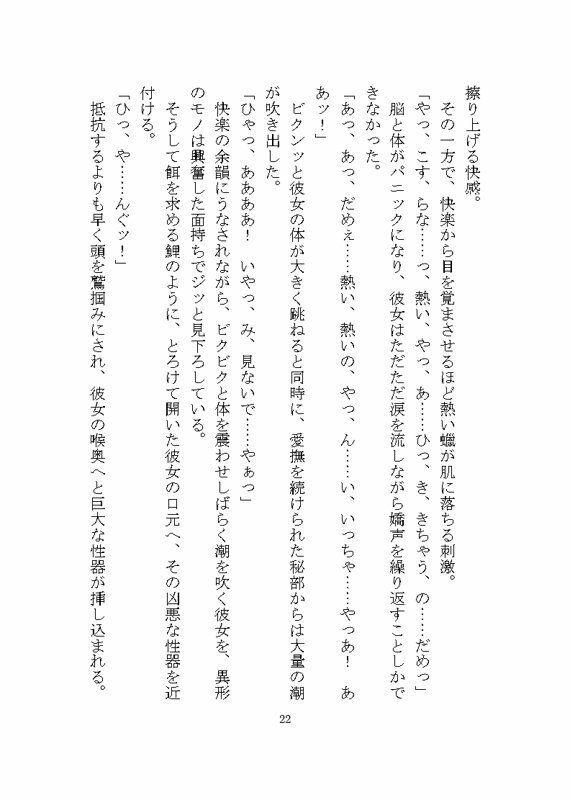 擦り上げる快感。
　その一方で、快楽から目を覚まさせるほど熱い蠟が肌に落ちる刺激。
「やっ、こす、らな……っ、熱い、やっ、あ……ひっ、き、きちゃう、の……だめっ」
　脳と体がパニックになり、彼女はただただ涙を流しながら嬌声を繰り返すことしかで
きなかった。
「あっ、あっ、だめぇ……熱い、熱いの、やっ、ん……い、いっちゃ……やっあ！　あ
あッ！」
　ビクンッと彼女の体が大きく跳ねると同時に、愛撫を続けられた秘部からは大量の潮
が吹き出した。
「ひゃっ、ああああ！　いやっ、み、見ないで……やぁっ」
　快楽の余韻にうなされながら、ビクビクと体を震わせしばらく潮を吹く彼女を、異形
のモノは興奮した面持ちでジッと見下ろしている。
　そうして餌を求める鯉のように、とろけて開いた彼女の口元へ、その凶悪な性器を近
付ける。
「ひっ、や……んぐッ！」
　抵抗するよりも早く頭を鷲掴みにされ、彼女の喉奥へと巨大な性器が挿し込まれる。
22